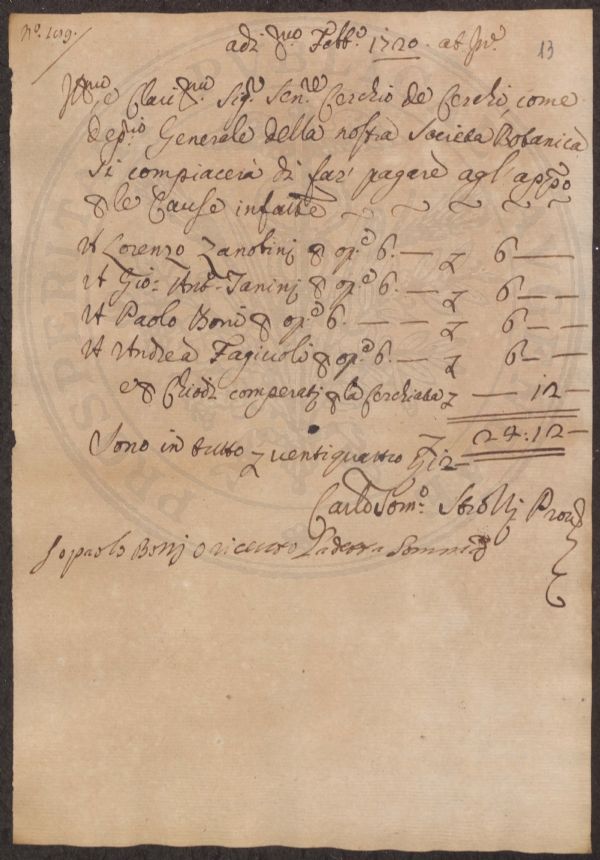 N.o 109.
adi p.mo Febb.o 1720. ab In.e 13
Ill.mo e Clariss.mo Sig.re Sen.re Cerchio de Cerchi, come
dep.rio Generale della nostra Societa Botanica
si compiacerà di far' pagare agl'app.o
le Cause infatte
A Lorenzo Zanobinj op.e 6. — 6 —
A Gio: Ant.o Taninj op.e 6. — 6 —
A Paolo Boni op.e 6 — 6 —
A Andrea Fagiuoli op.e 6 — 6 —
e Chiodi comperatj la Cerchiata — 12 —
24:12 —
Sono in tutto ventiquattro 12 —
Carlo Tom.o Strozzj Prov.re
Io paolo Bonj o riceuto la detta Somma
PROSPERITA PVBLICAE AVGEN